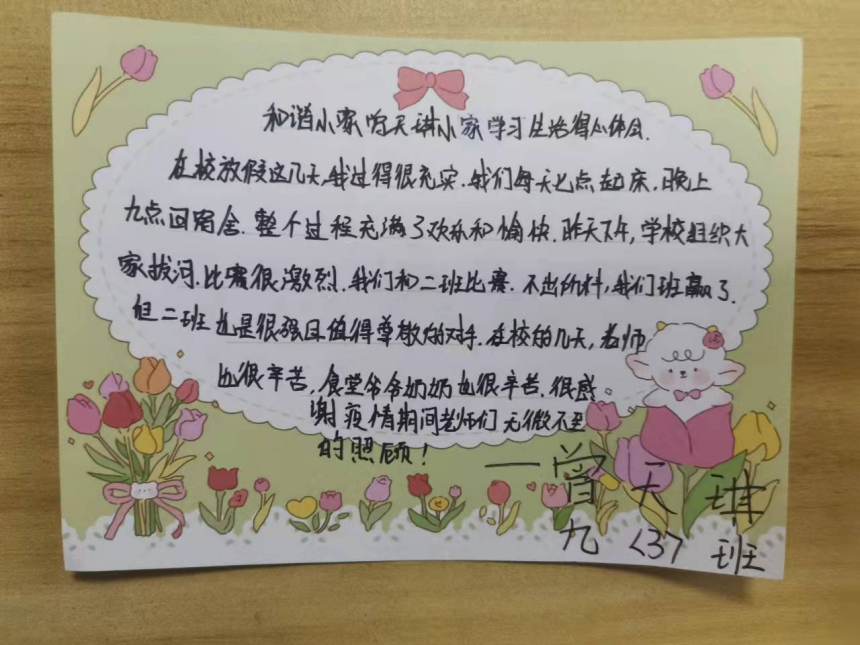 和谐小家的天琪小家学习生活得心体会.
在校放假这几天,我过得很充实.我们每天七点起床.晚上
九点回宿舍.整个过程充满了欢乐和愉快.昨天下午,学校组织大
家拔河.比赛很激烈.我们和二班比赛.不出所料,我们班赢了.
但二班也是很强且值得尊敬的对手.在校的几天,老师
也很辛苦,食堂爷爷奶奶也很辛苦.很感
谢疫情期间老师们无微不至
的照顾!
——曾天琪
九<3>班